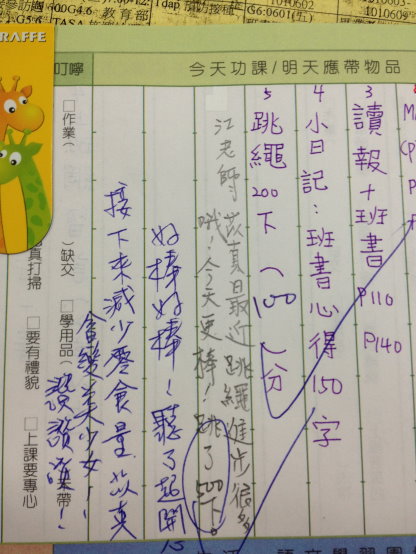 今天功課/明天應帶物品
叮嚀
3 讀報+班書 P110
P140
4 小日記：班書心得150字
5 跳繩200下（100）分
江老師，苡真最近跳繩進步很多
哦！今天更棒！跳了500下。
好棒好棒！聽了超開心
接下來減少零食量苡真
會變美少女！
讚讚讚！
□作業（ ）缺交 □學用品（ 未帶
真打掃 □要有禮貌 □上課要專心
RAFFE
教育部
1010602
G6:0601(五)
4010609